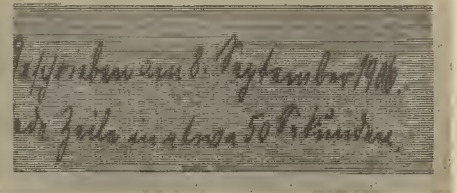 geschrieben am 8. September 19
ede Zeile in etwa 50 Sekunden.